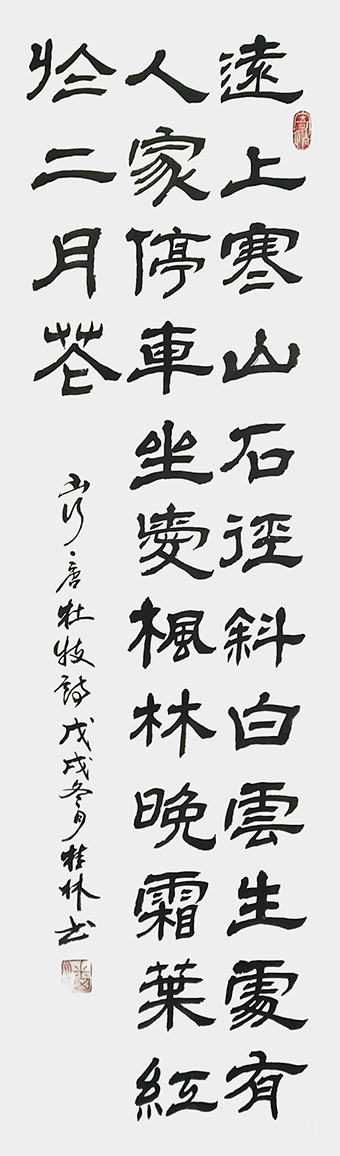 遠上寒山石徑斜白雲生處有
人家停車坐愛楓林晚霜葉紅
於二月花
山行·唐杜牧詩戊戌冬月桂林书